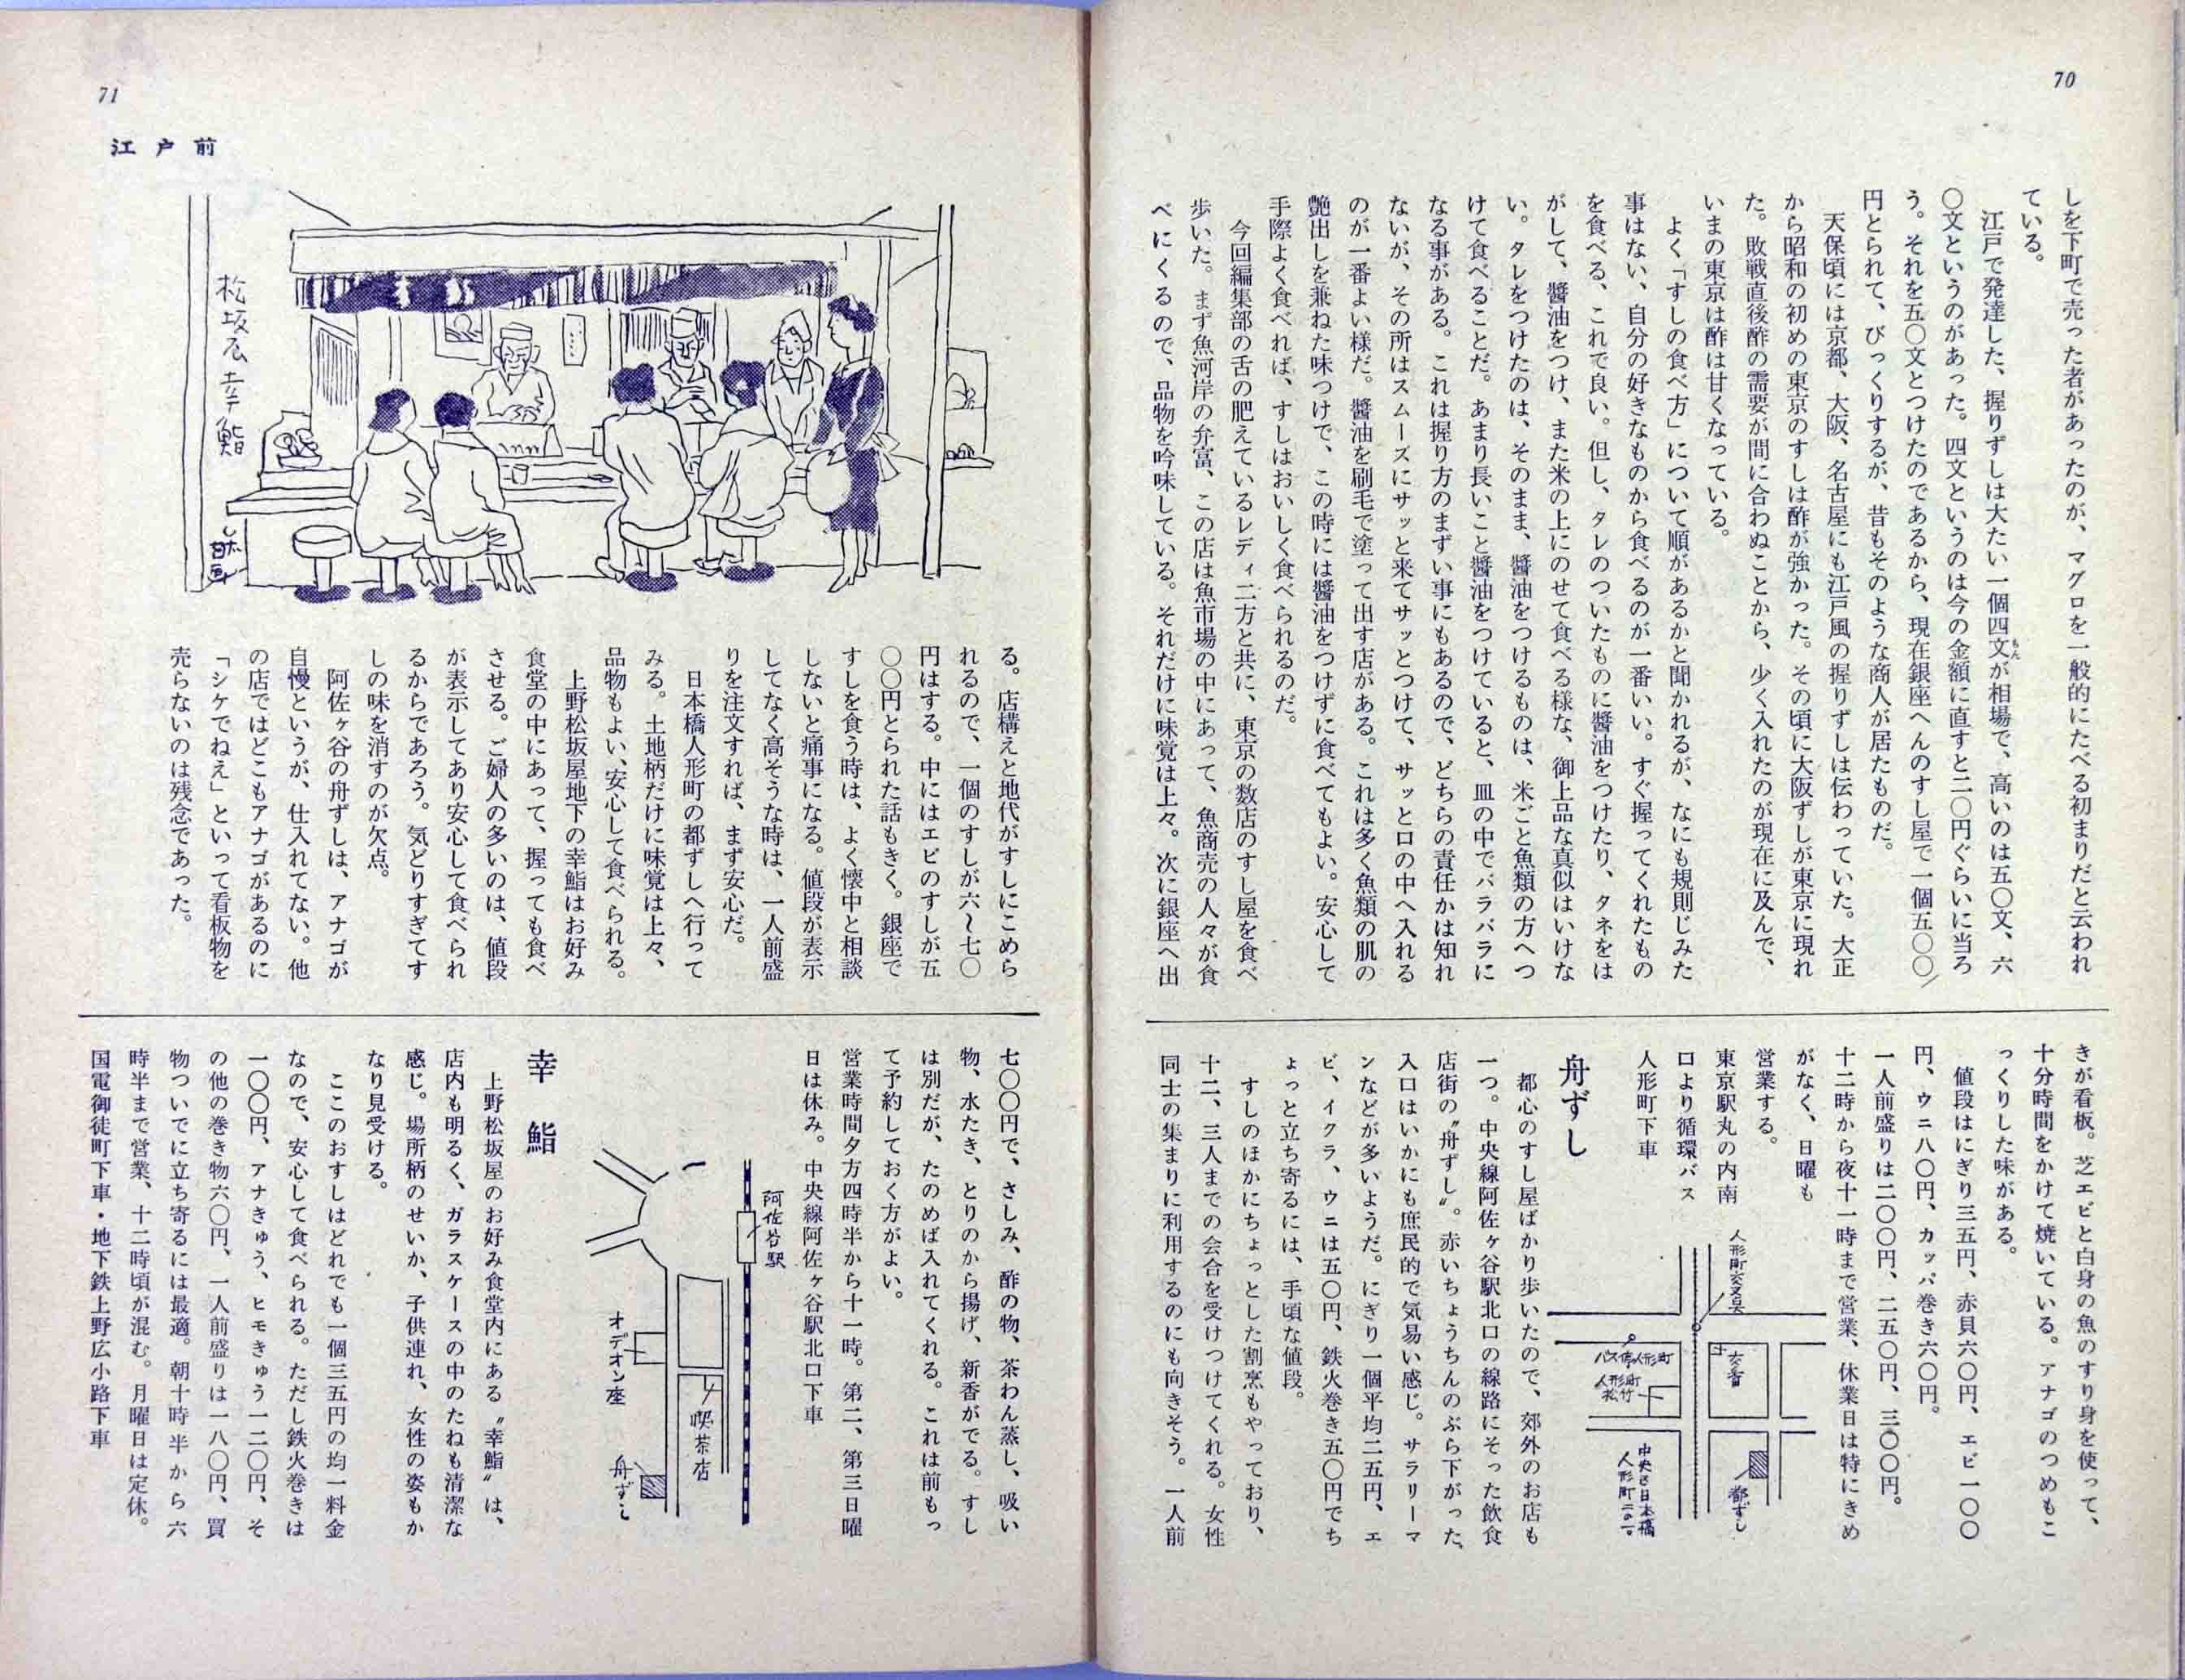 70
しを下町で売った者があったのが、マグロを一般的にたべる初まりだと云われ
ている。
江戸で発達した、握りずしは大たい一個四文が相場で、高いのは五〇文、六
もん
〇文というのがあった。四文というのは今の金額に直すと二〇円ぐらいに当ろ
う。それを五〇文とつけたのであるから、現在銀座へんのすし屋で一個五〇〇
円とられて、びっくりするが、昔もそのような商人が居たものだ。
天保頃には京都、大阪、名古屋にも江戸風の握りずしは伝わっていた。大正
から昭和の初めの東京のすしは酢が強かった。その頃に大阪ずしが東京に現れ
た。敗戦直後酢の需要が間に合わぬことから、少く入れたのが現在に及んで、
いまの東京は酢は甘くなっている。
よく「すしの食べ方」について順があるかと聞かれるが、なにも規則じみた
事はない、自分の好きなものから食べるのが一番いい。すぐ握ってくれたもの
を食べる、これで良い。但し、タレのついたものに醬油をつけたり、タネをは
がして、醬油をつけ、また米の上にのせて食べる様な、御上品な真似はいけな
い。タレをつけたのは、そのまま、醬油をつけるものは、米ごと魚類の方へつ
けて食べることだ。あまり長いこと醬油をつけていると、皿の中でバラバラに
なる事がある。これは握り方のまずい事にもあるので、どちらの責任かは知れ
ないが、その所はスムーズにサッと来てサッとつけて、サッと口の中へ入れる
のが一番よい様だ。醬油を刷毛で塗って出す店がある。これは多く魚類の肌の
艶出しを兼ねた味つけで、この時には醬油をつけずに食べてもよい。安心して
手際よく食べれば、すしはおいしく食べられるのだ。
今回編集部の舌の肥えているレディ二方と共に、東京の数店のすし屋を食べ
歩いた。まず魚河岸の弁富、この店は魚市場の中にあって、魚商売の人々が食
べにくるので、品物を吟味している。それだけに味覚は上々。次に銀座へ出
きが看板。芝エビと白身の魚のすり身を使って、
十分時間をかけて焼いている。アナゴのつめもこ
っくりした味がある。
値段はにぎり三五円、赤貝六〇円、エビ一〇〇
円、ウニ八〇円、カッパ巻き六〇円。
一人前盛りは二〇〇円、二五〇円、三〇〇円。
十二時から夜十一時まで営業、休業日は特にきめ
がなく、日曜も
営業する。
東京駅丸の内南
口より循環バス
人形町下車
人形町交叉点
交番
バス停人形町
人形町
松竹
都ずし
中央区日本橋
舟ずし
都心のすし屋ばかり歩いたので、郊外のお店も
一つ。中央線阿佐ヶ谷駅北口の線路にそった飲食
店街の〝舟ずし〟。赤いちょうちんのぶら下がった、
入口はいかにも庶民的で気易い感じ。サラリーマ
ンなどが多いようだ。にぎり一個平均二五円、エ
ビ、イクラ、ウニは五〇円、鉄火巻き五〇円でち
ょっと立ち寄るには、手頃な値段。
すしのほかにちょっとした割烹もやっており、
十二、三人までの会合を受けつけてくれる。女性
同士の集まりに利用するのにも向きそう。一人前
71
江戸前
松坂屋幸鮨
る。店構えと地代がすしにこめら
れるので、一個のすしが六〜七〇
円はする。中にはエビのすしが五
〇〇円とられた話もきく。銀座で
すしを食う時は、よく懐中と相談
しないと痛事になる。値段が表示
してなく高そうな時は、一人前盛
りを注文すれば、まず安心だ。
日本橋人形町の都ずしへ行って
みる。土地柄だけに味覚は上々、
品物もよい、安心して食べられる。
上野松坂屋地下の幸鮨はお好み
食堂の中にあって、握っても食べ
させる。ご婦人の多いのは、値段
が表示してあり安心して食べられ
るからであろう。気どりすぎてす
しの味を消すのが欠点。
阿佐ヶ谷の舟ずしは、アナゴが
自慢というが、仕入れてない。他
の店ではどこもアナゴがあるのに
「シケでねえ」といって看板物を
売らないのは残念であった。
七〇〇円で、さしみ、酢の物、茶わん蒸し、吸い
物、水たき、とりのから揚げ、新香がでる。すし
は別だが、たのめば入れてくれる。これは前もっ
て予約しておく方がよい。
営業時間夕方四時半から十一時。第二、第三日曜
日は休み。中央線阿佐ヶ谷駅北口下車
阿佐谷駅
喫茶店
オデオン座
舟ずし
幸鮨
上野松坂屋のお好み食堂内にある〝幸鮨〟は、
店内も明るく、ガラスケースの中のたねも清潔な
感じ。場所柄のせいか、子供連れ、女性の姿もか
なり見受ける。
ここのおすしはどれでも一個三五円の均一料金
なので、安心して食べられる。ただし鉄火巻きは
一〇〇円、アナきゅう、ヒモきゅう一二〇円、そ
の他の巻き物六〇円、一人前盛りは一八〇円、買
物ついでに立ち寄るには最適。朝十時半から六
時半まで営業、十二時頃が混む。月曜日は定休。
国電御徒町下車・地下鉄上野広小路下車